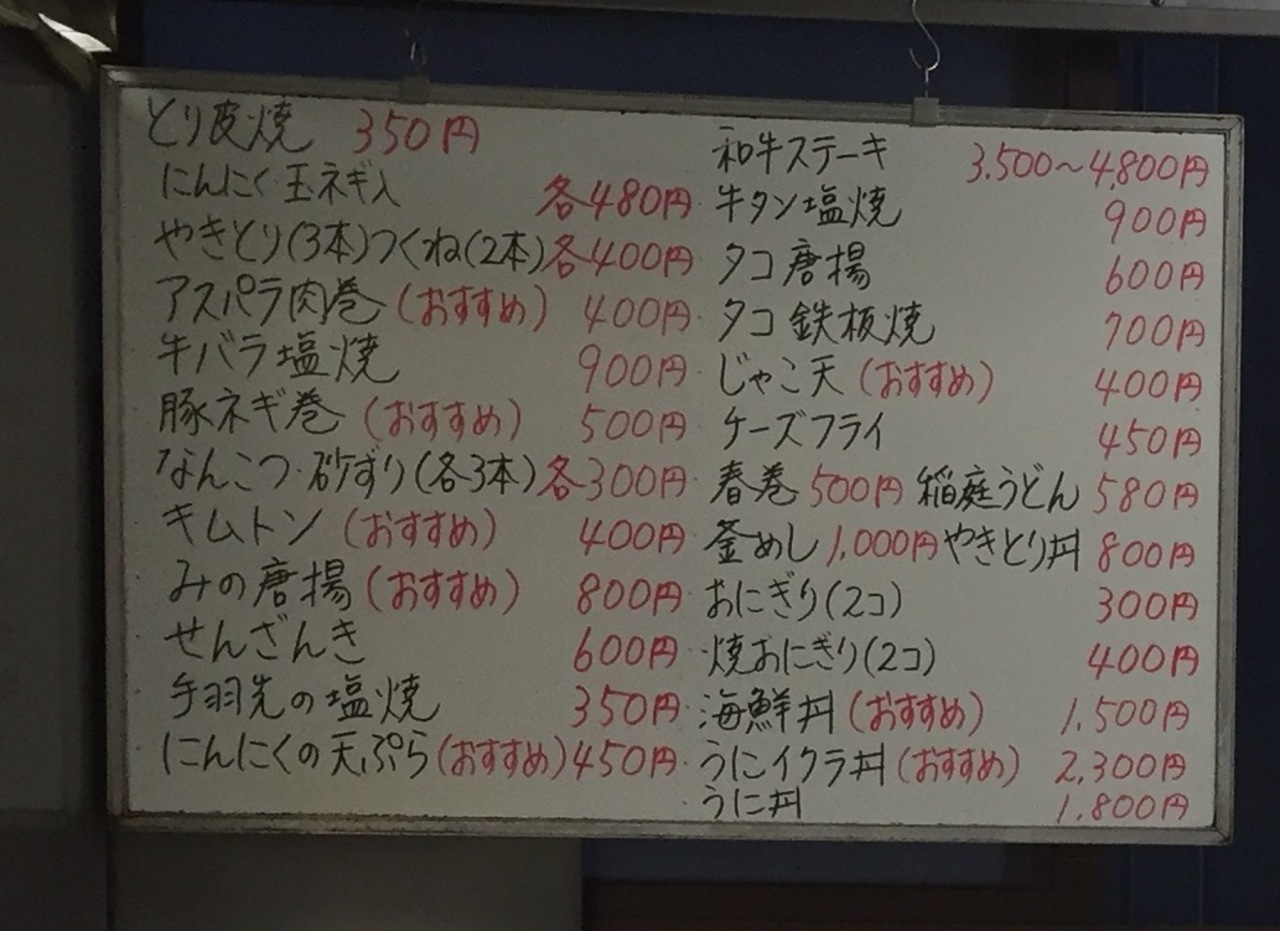 とり皮焼 350円
にんにく玉ネギ入 各480円
やきとり(3本)つくね(2本)各400円
アスパラ肉巻(おすすめ) 400円
牛バラ塩焼 900円
豚ネギ巻(おすすめ) 500円
なんこつ・砂ずり(各3本)各300円
キムトン(おすすめ) 400円
みの唐揚(おすすめ) 800円
せんざんき 600円
手羽先の塩焼 350円
にんにくの天ぷら(おすすめ)450円
和牛ステーキ 3.500〜4,800円
牛タン塩焼 900円
タコ唐揚 600円
タコ鉄板焼 700円
じゃこ天(おすすめ) 400円
チーズフライ 450円
春巻 500円 稲庭うどん 580円
釜めし 1,000円 やきとり丼 800円
おにぎり(2コ) 300円
焼おにぎり(2コ) 400円
海鮮丼(おすすめ) 1,500円
うにイクラ丼(おすすめ) 2,300円
うに丼 1,800円